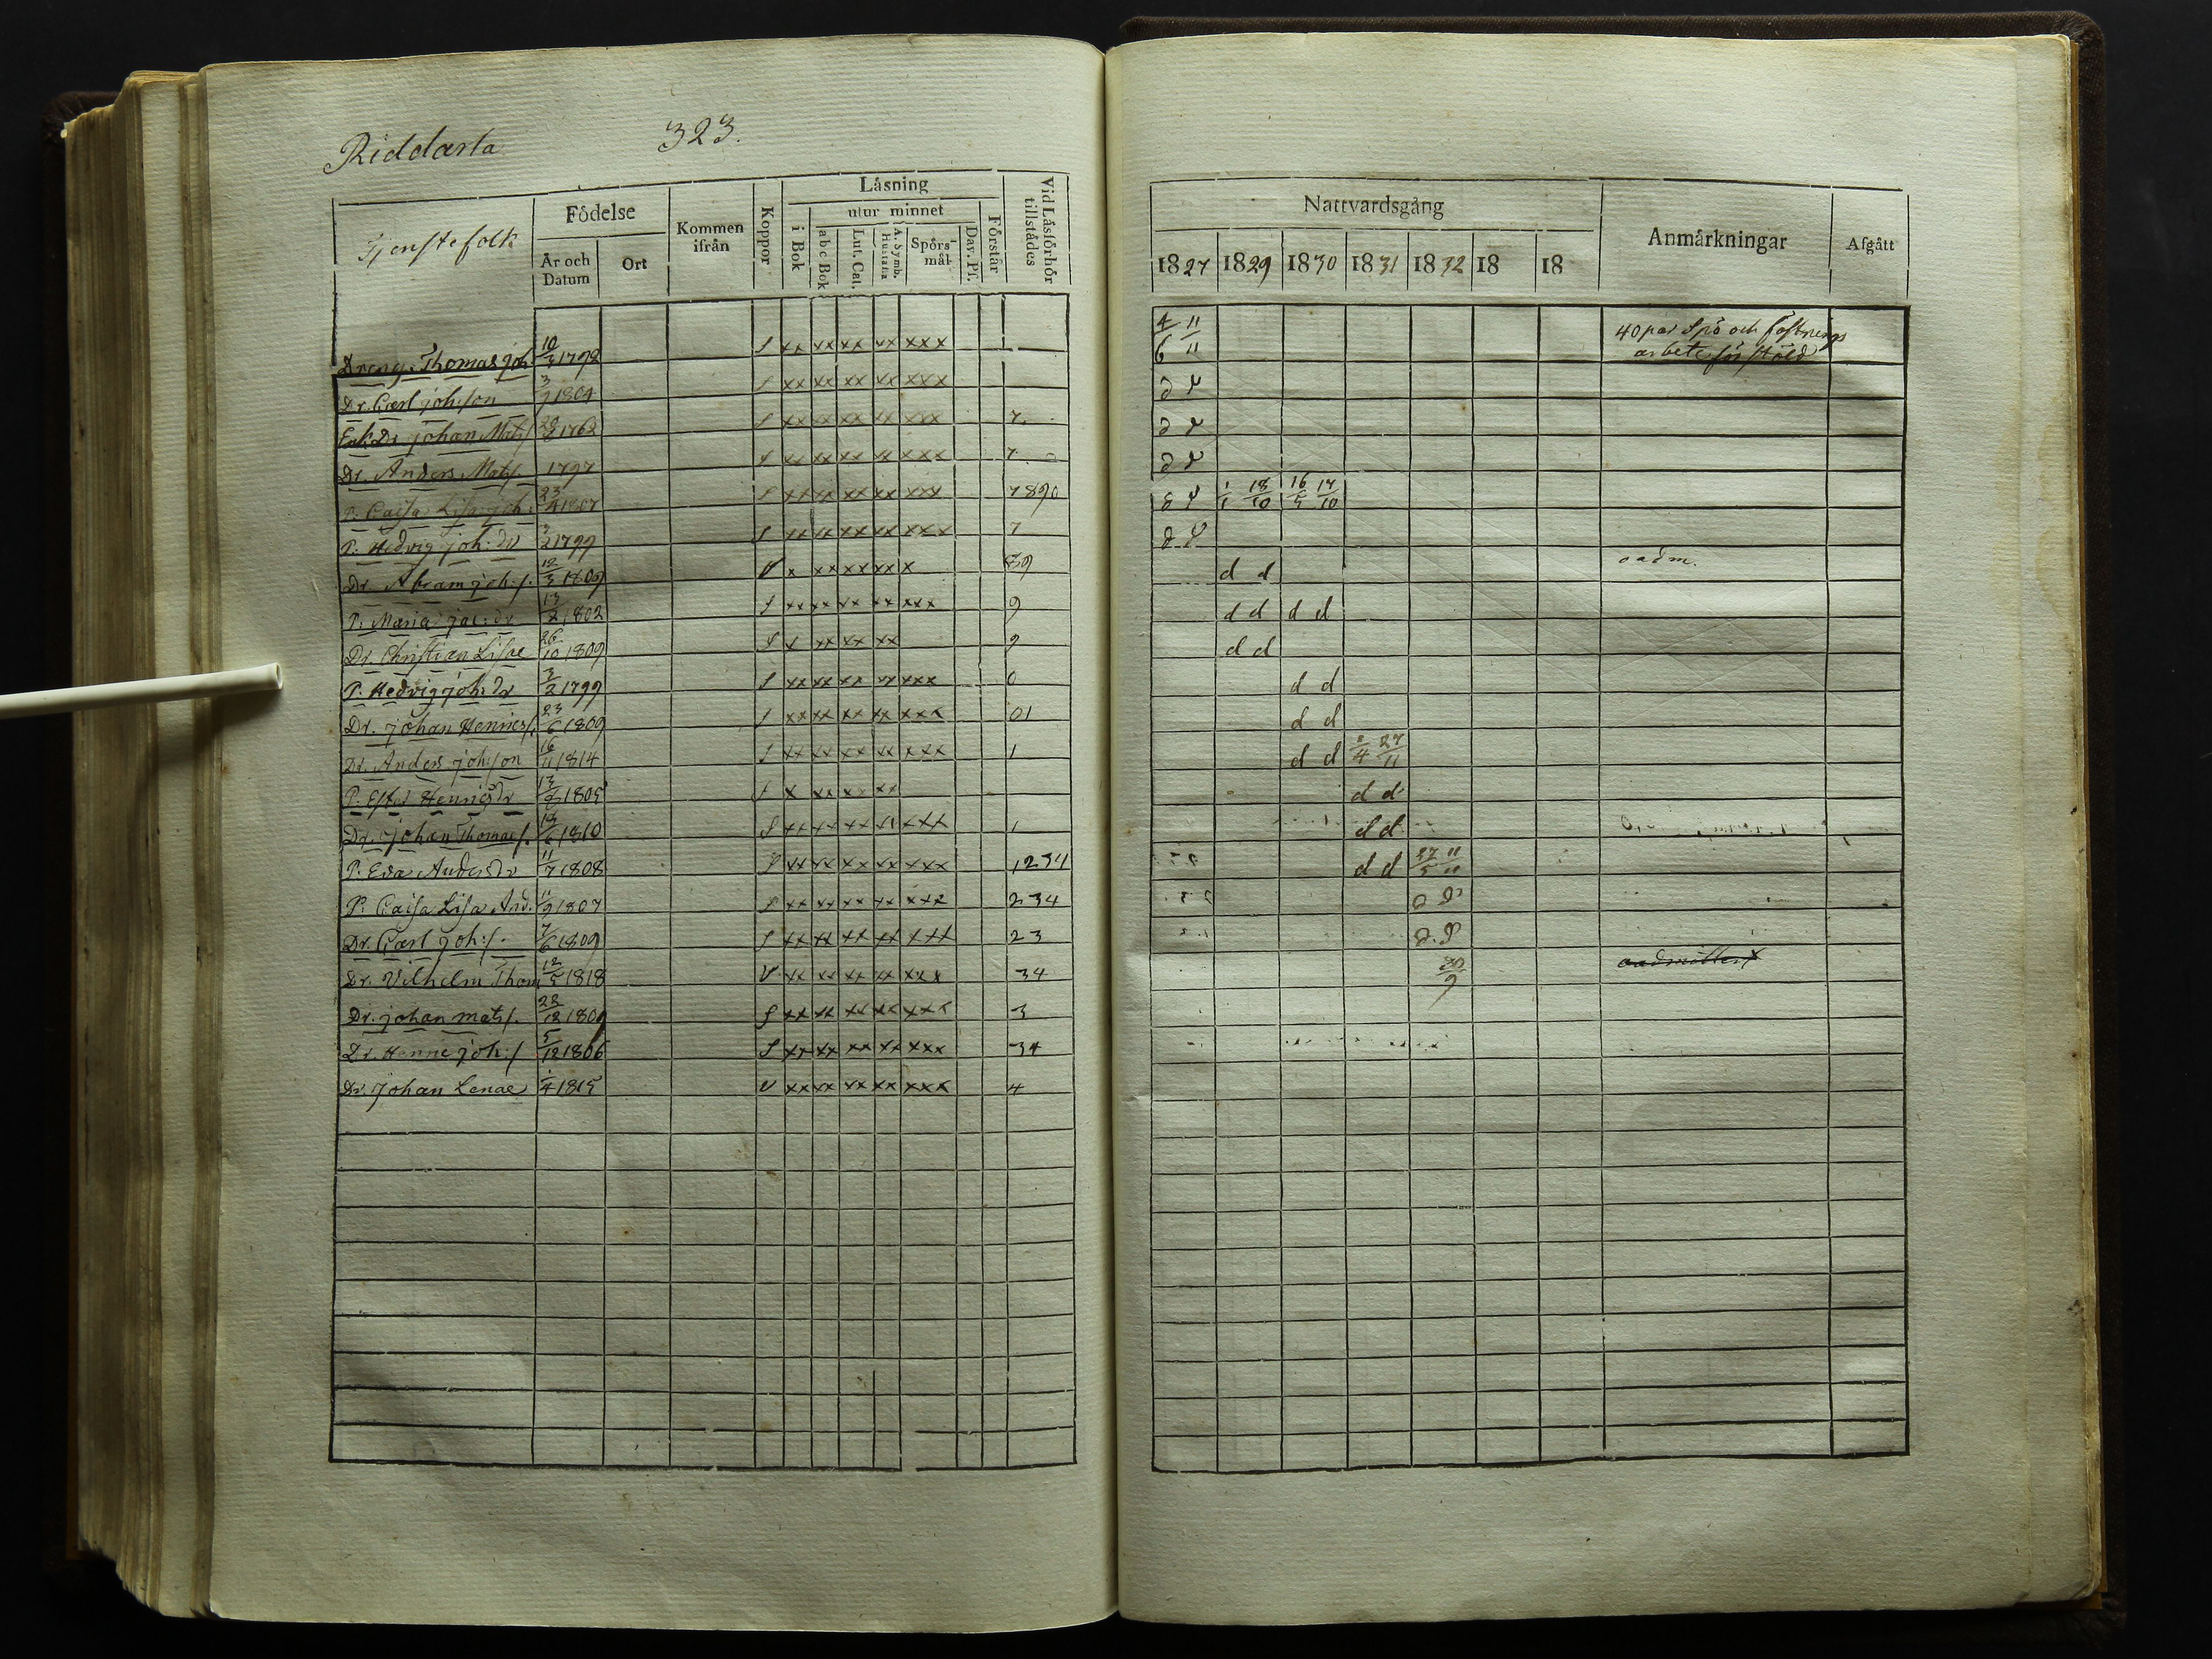 Riddarla 323.
Tjenstefolk
Födelse
År och Datum
Ort
Kommen ifrån
Koppor
Läsning
i Bok
utur minnet
a b c Bok
Lut. Cat.
A. Symb. Hustafla
Spörs-mål
Dav. Ps.
Förstår
Vid Läsförhör tillstädes
Nattvardsgång
1827 1829 1830 1831 1832 18 18
Anmärkningar
Afgått
Dreng. Thomas joh. 10/3 1798 S xx xx xx xx xxx 4/6 11/11 40 par Spö och
arbete
Dr. Carl joh:son 1804 S xx xx xx xx xxx
Enk: Dr johan Mats/. 1762 S xx xx xx xx xxx 7
Dr. Anders Mats/. 1797 S xx xx xx xx xxx 7
P. Caisa Lisa joh: 23/4 1807 S xx xx xx xx xxx 7890 1/1 18/10 16/5 17/10
P: Hedvig joh: dr 3/2 1799 S xx xx xx xx xxx 7
Dr. Abram joh:/. 12/3 1809 V x xx xx xx x 89 d d oadm.
P: Maria jac: dr 13/2 1802 S xx xx xx xx xxx 9 d d d d
Dr. Christian Lisae 26/10 1809 S x xx xx xx 9 d d
P. Hedvig joh: dr 3/2 1799 S xx xx xx xx xxx 0 d d
Dr. johan Henrics/. 23/6 1809 S xx xx xx xx xxx 01 d d
Dr. Anders joh:son 16/11 1814 S xx xx xx xx xxx 1 d d 2/4 27/11
P: Ester Henricsdr 1805 S x xx xx xx d d
Dr. johan Thomas/. 1810 S xx xx xx xx xxx 1 d d
P: Eva Andersdr 11/7 1808 S xx xx xx xx xxx 1234 d d 27/5 11/11
P: Caisa Lisa And. 1807 S xx xx xx xx xxx 234
Dr. Carl joh:/. 7/6 1809 S xx xx xx xx xxx 23
Dr. Vilhelm Thom 12/5 1818 V xx xx xx xx xxx 34
Dr. johan mats/. 28/12 1809 S xx xx xx xx xxx 3
Dr. Henric joh:/ 5/12 1806 S xx xx xx xx xxx 34
Dr. Johan Lenae 1/4 1815 V xx xx xx xx xxx 4